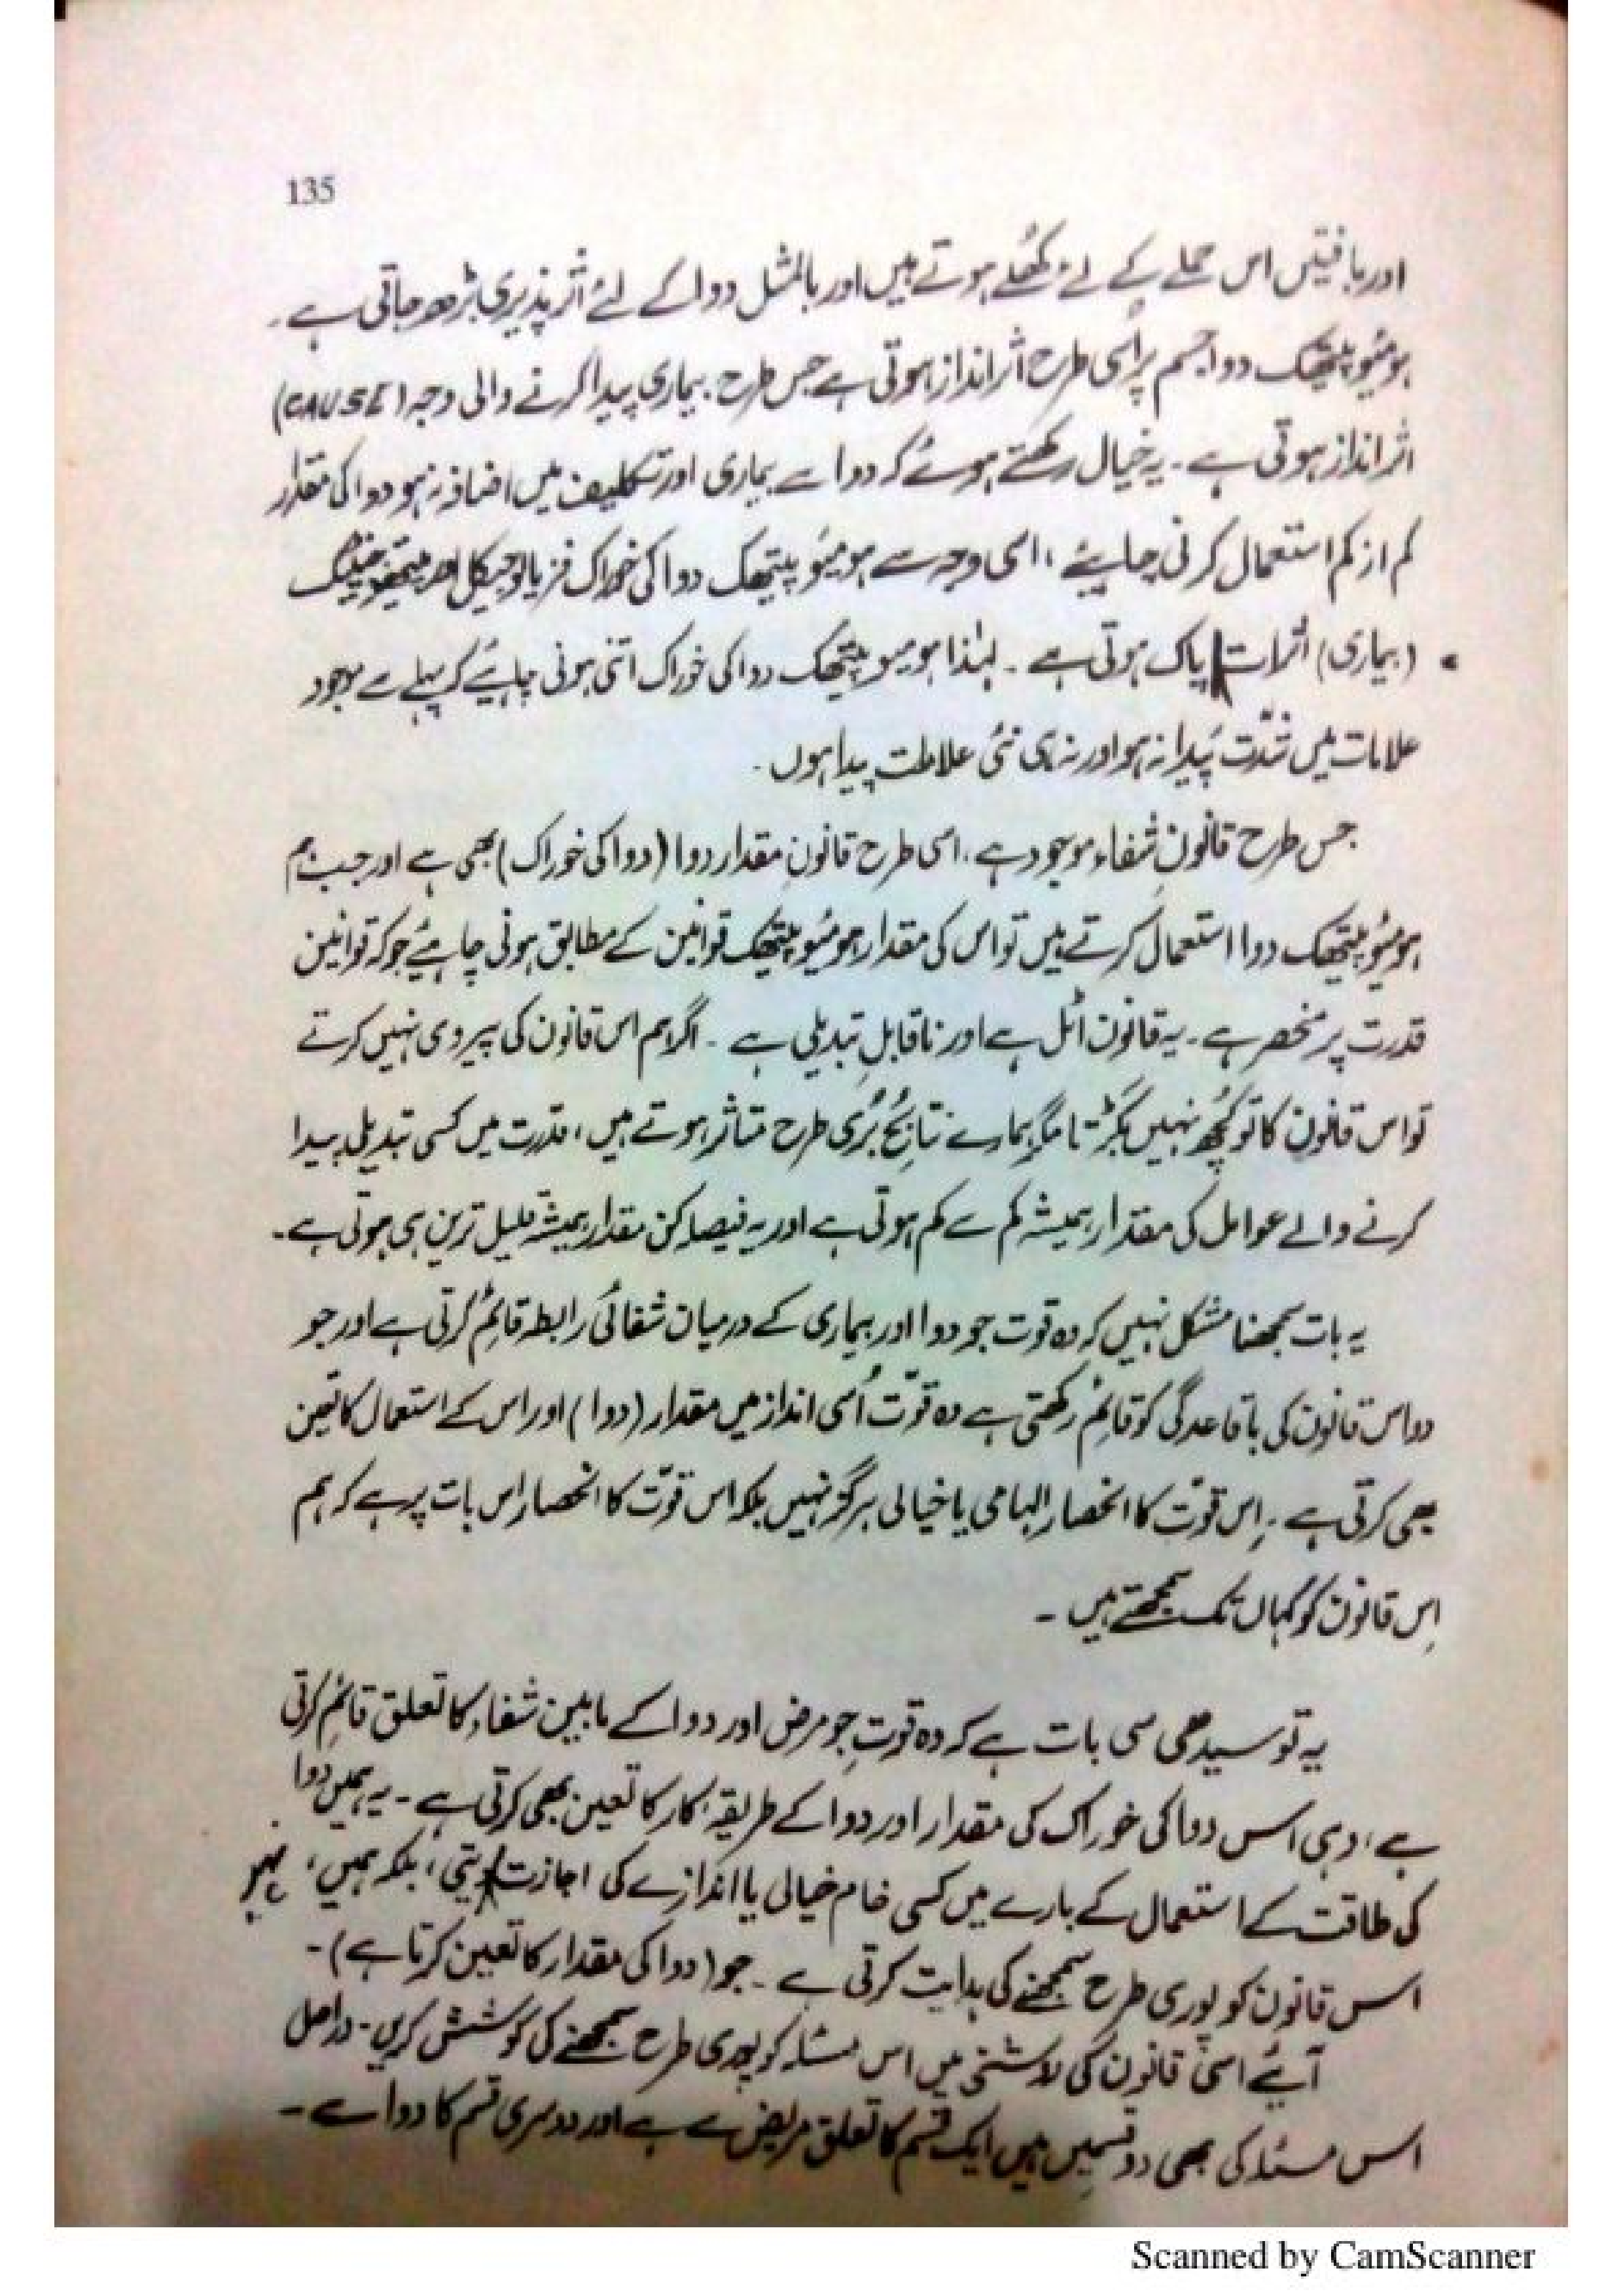 135
اور بافتیں اس حملے کے لئے کُھلے ہوتے ہیں اور بالمثل دوا کے لئے اثر پذیری بڑھ جاتی ہے ۔
ہومیُوپیتھک دوا جسم پر اُسی طرح اثر انداز ہوتی ہے جس طرح بیماری پیدا کرنے والی وجہ (CAUSE)
اثر انداز ہوتی ہے ۔ یہ خیال رکھتے ہوئے کہ دوا سے بیماری اور تکلیف میں اضافہ نہ ہو دوا کی مقدار
کم از کم استعمال کرنی چاہیئے ، اسی وجہ سے ہومیُوپیتھک دوا کی خوراک فزیالوجیکل اور
(بیماری) اثرات پاک ہوتی ہے ۔ لہٰذا ہومیوپیتھک دوا کی خوراک اتنی ہونی چاہیئے کہ پہلے سے موجود
علامات میں شدّت پَیدا نہ ہو اور نہ ہی نئی علامات پیدا ہوں ۔
جس طرح قانُونِ شفاء موجود ہے ، اسی طرح قانونِ مقدار دوا (دوا کی خوراک) بھی ہے اور جب ہم
ہومیُوپیتھک دوا استعمال کرتے ہیں تو اس کی مقدار ہومیُوپیتھک قوانین کے مطابق ہونی چاہیئے جو کہ قوانین
قدرت پر منحصر ہے ۔ یہ قانُون اٹل ہے اور ناقابلِ تبدیلی ہے ۔ اگر ہم اس قانُون کی پیروی نہیں کرتے
تو اس قانُون کا تو کُچھ نہیں بگڑتا مگر ہمارے نتائج بُری طرح متاثر ہوتے ہیں ، قدرت میں کسی تبدیلی پیدا
کرنے والے عوامل کی مقدار ہمیشہ کم سے کم ہوتی ہے اور یہ فیصلہ کن مقدار ہمیشہ قلیل ترین ہی ہوتی ہے ۔
یہ بات سمجھنا مشکل نہیں کہ وہ قوت جو دوا اور بیماری کے درمیان شفائی رابطہ قائم کرتی ہے اور جو
دوا اس قانُون کی باقاعدگی کو قائم رکھتی ہے وہ قوّت اُسی انداز میں مقدار (دوا) اور اس کے استعمال کا تعین
بھی کرتی ہے ۔ اِس قوّت کا انحصار الہامی یا خیالی ہرگز نہیں بلکہ اس قوّت کا انحصار اس بات پر ہے کہ ہم
اِس قانُون کو کہاں تک سمجھتے ہیں ۔
یہ تو سیدھی سی بات ہے کہ وہ قوتِ جو مرض اور دوا کے مابین شفاء کا تعلق قائم کرتی
ہے ، وہی اس دوا کی خوراک کی مقدار اور دوا کے طریقہ کار کا تعین بھی کرتی ہے ۔ یہ ہمیں دوا
کی طاقت کے استعمال کے بارے میں کسی خام خیالی یا اندازے کی اجازت دیتی ، بلکہ ہمیں ، نہیں
اس قانون کو پوری طرح سمجھنے کی ہدایت کرتی ہے ۔ جو (دوا کی مقدار کا تعین کرتا ہے) ۔
آیئے اسی قانون کی روشنی میں اس مسئلہ کو پوری طرح سمجھنے کی کوشش کریں ۔ دراصل
اس مسئلہ کی بھی دو قسمیں ہیں ایک قسم کا تعلق مریض سے ہے اور دوسری قسم کا دوا سے ۔
Scanned by CamScanner